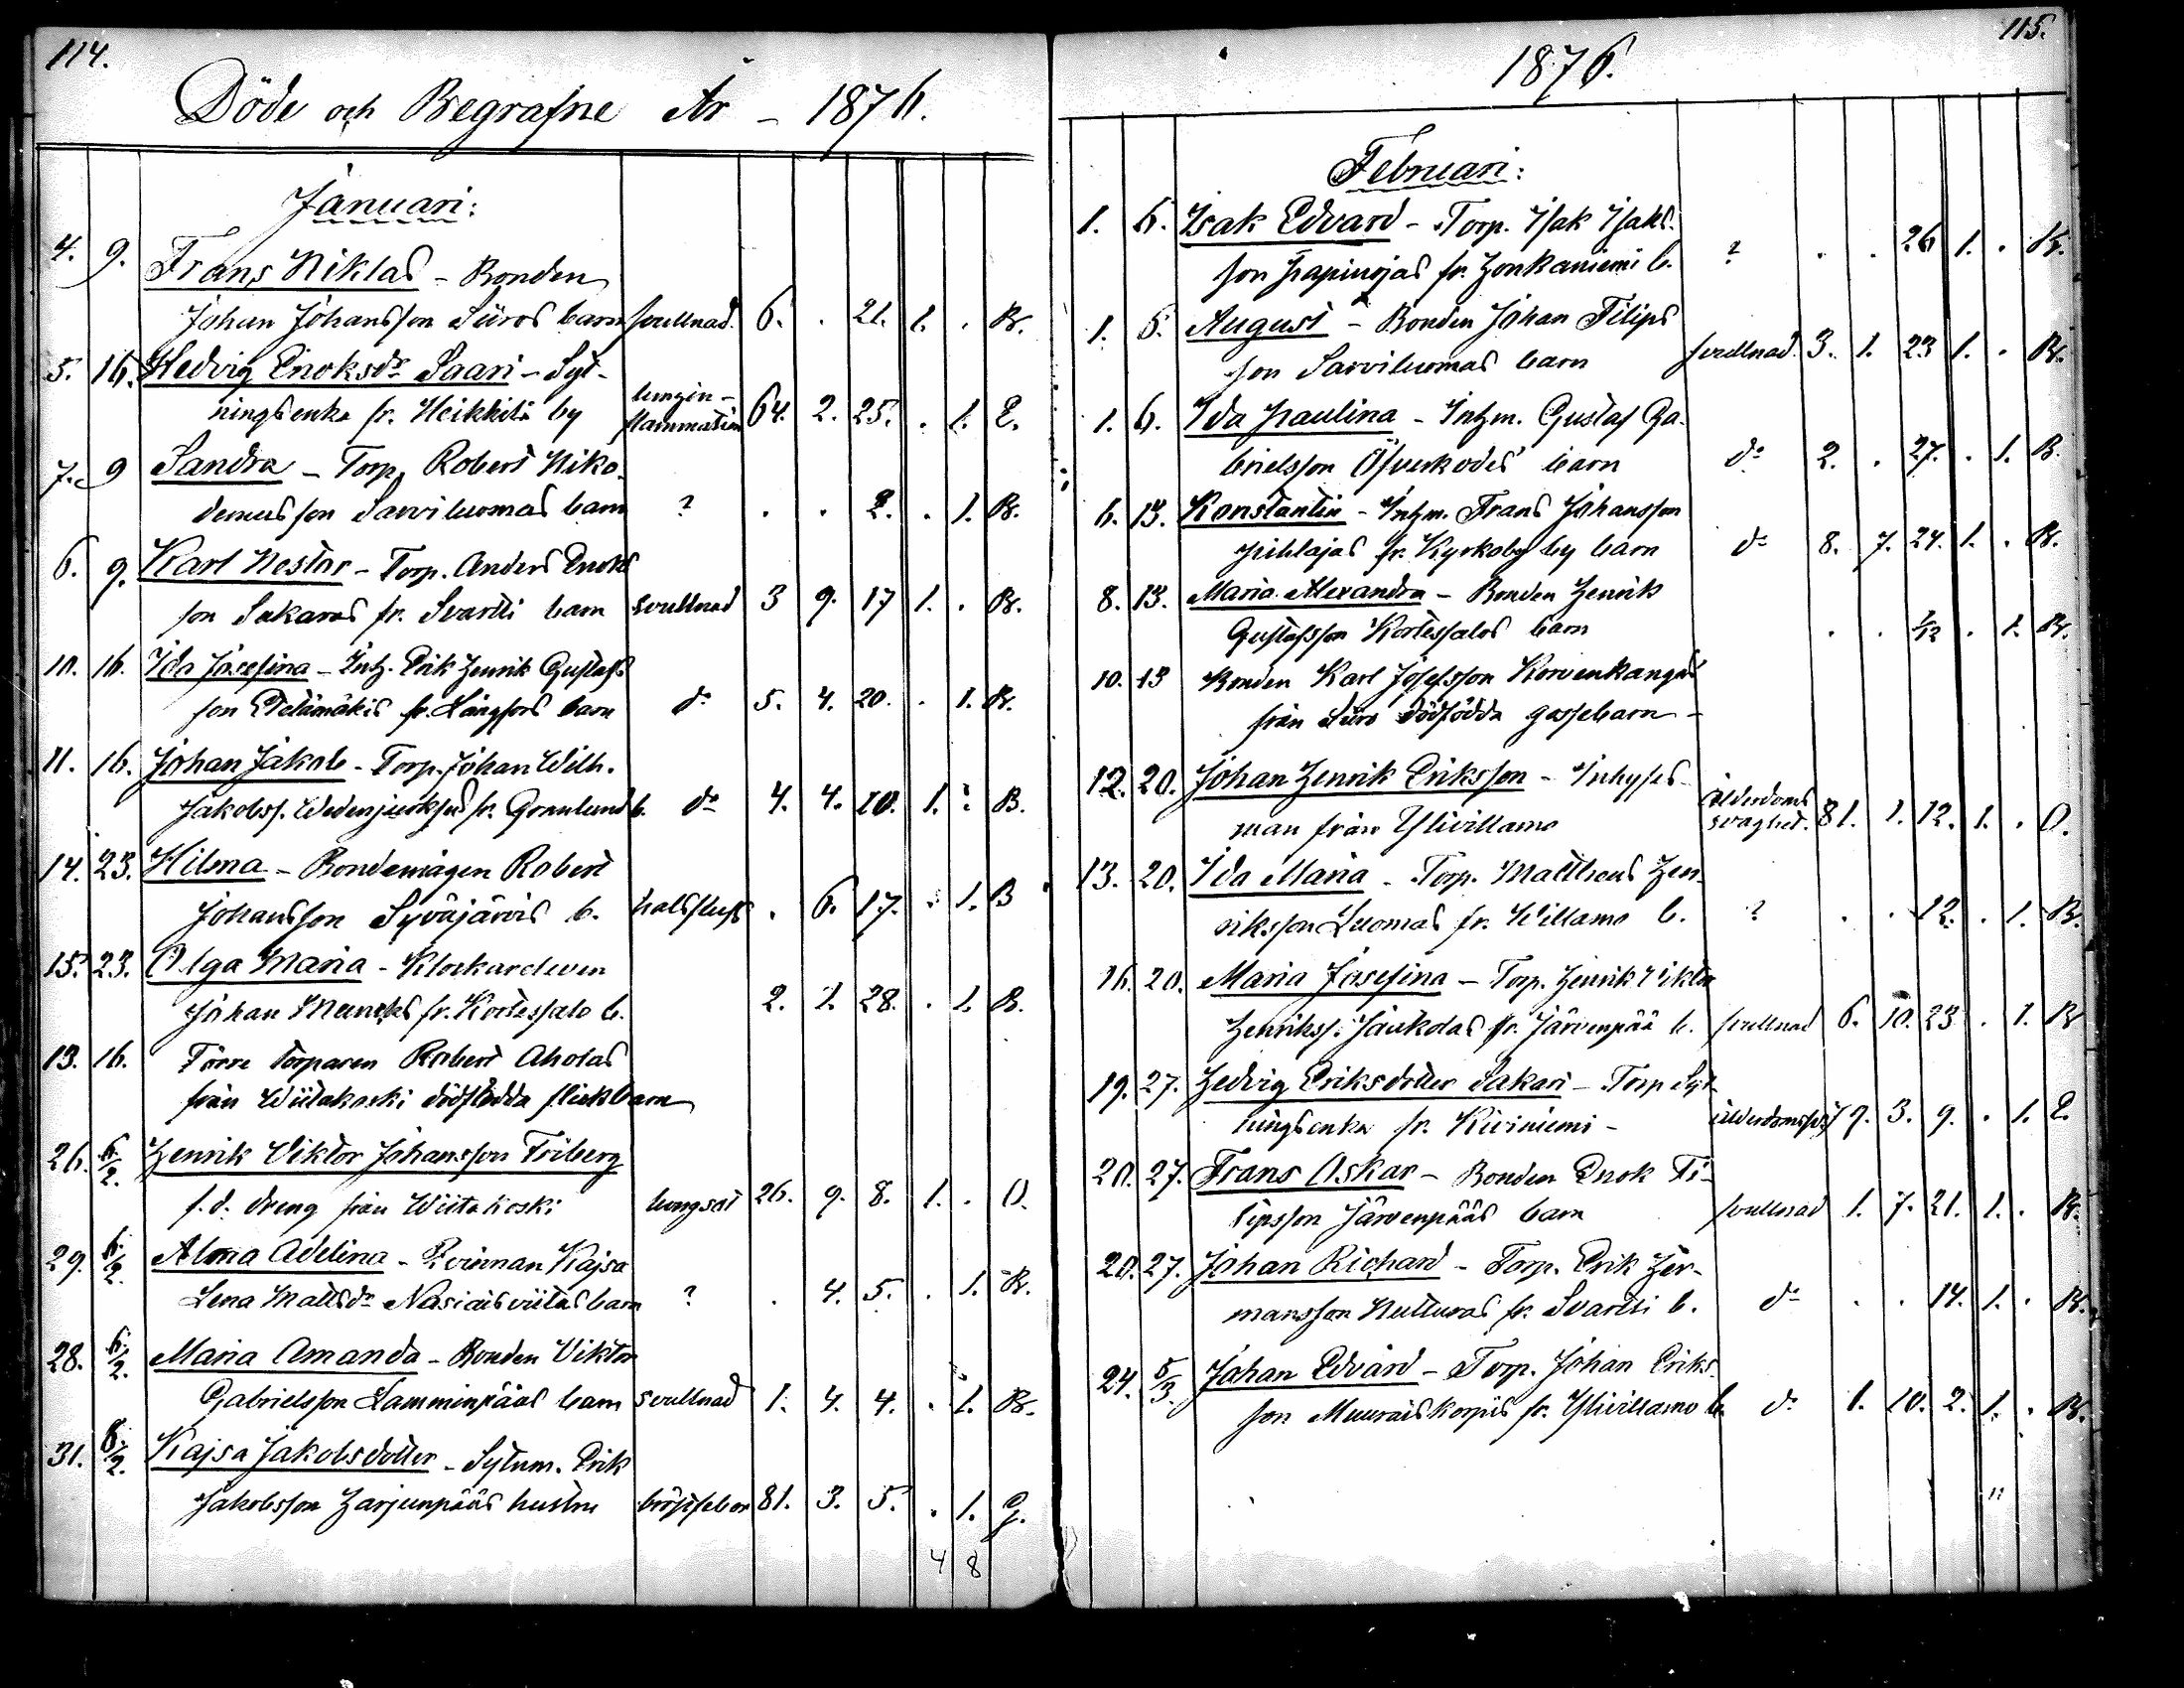 114.
Döde och Begrafne År - 1876.
Januari:
4. 9. Frans Niklas - Bonden
Johan Johansson Siiros barn svullnad. 6. . 21. 1. . B.
5. 16. Hedvig Enoksdr Saari - Syt-
ningsenka fr. Heikkilä by lungin-
flammation 64. 2. 25. . 1. E.
7. 9 Sandra - Torp. Robert Niko-
demusson Sarviluomas barn ? . . 2. . 1. B.
6. 9. Karl Nestor - Torp. Anders Enoks
son Sakaras fr. Svartti barn svullnad 3 9. 17 1. . B.
10. 16. Ida Josefina - Inh. Erik Henrik Gustafs
son Etelämäkis fr. Långfors barn do 5. 4. 20. . 1. B.
11. 16. Johan Jakob - Torp. Johan Wilh.
Jakobss. fr. Granlund b. do 4. 4. 10. 1. . B.
14. 23. Hilma - Bondemågen Robert
Johansson Syväjärvis b. halsfluss . 6. 17. . 1. B
15. 23. Olga Maria - Klockareleven
Johan fr. Kortessalo b. 2. 2. 28. . 1. B.
13. 16. Förre torparen Robert Aholas
från Wiitakoski dödfödda flickbarn
26. 6/2. Henrik Viktor Johansson Friberg
f.d. dreng från Wiitakoski lungsot 26. 9. 8. 1. . O.
29. 6/2. Alma Adelina - Qvinnan Kajsa
Lena Mattsdr barn ? . 4. 5. . 1. B.
28. 6/2. Maria Amanda - Bonden Viktor
Gabrielsson Lamminpääs barn svullnad 1. 4. 4. . 1. B.
31. 6/2. Kajsa Jakobsdotter - Sytnm. Erik
Jakobsson Harjunpääs hustru 81. 3. 5. . 1. G.
4 8
115.
1876.
Februari:
1. 6. Isak Edvard - Torp. Isak Isaks-
son fr. Honkaniemi b. ? . . 26 1. . B.
1. 6. August - Bonden Johan Filips
son Sarviluomas barn svullnad. 3. 1. 23 1. . B.
1. 6. Ida Paulina - Inhm. Gustaf Ga-
brielsson barn do 2. . 27. . 1. B.
6. 13. Konstantin - Inhm. Frans Johansson
Pihlajas fr. Kyrkoby by barn do 8. 7. 24. 1. . B.
8. 13. Maria Alexandra - Bonden Henrik
Gustafsson Kortessalos barn . . 1/12 . 1. B.
10. 13 Bonden Karl Josefsson Korvenkangas
från Siiro dödfödda gossebarn -
12. 20. Johan Henrik Eriksson - Inhyses-
man från Ylivillamo ålderdoms
svaghet. 81. 1. 12. 1. . O.
13. 20. Ida Maria - Torp. Mattheus Hen-
riksson Luomas fr. Villamo b. ? . . 12. . 1. B.
16. 20. Maria Josefina - Torp. Henrik Viktor
Henrikss. fr. Järvenpää b. svullnad 6. 10. 23 . 1. B
19. 27. Hedvig Eriksdotter Sakari - Torp Syt-
ningsenka fr. Kiviniemi - 79. 3. 9. . 1. E.
20. 27. Frans Oskar - Bonden Enok Fi-
lipsson Järvenpääs barn svullnad 1. 7. 21. 1. . B.
20. 27. Johan Richard - Torp. Erik Her-
mansson fr. Svartti b. do . . 14. 1. . B.
24. 5/3. Johan Edvard - Torp. Johan Eriks-
son Muuraiskorpis fr. Ylivillamo b. do 1. 10. 2. 1. . B.